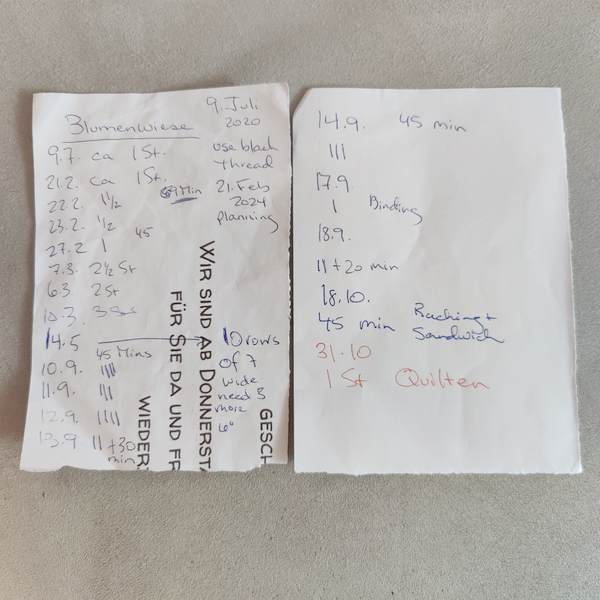 Blumenwiese
9. Juli
2020
9.7. ca 1 St.
use black
thread
21.2. ca 1 St.
69 Min
21. Feb
2024
planning
22.2. 1 1/2
23.2. 1/2
45
27.2 1
7.3. 2 1/2 St
6.3 2 St
10.3. 3 St
14.5
10 rows
of 7
wide
need 3
more
6"
45 Mins
10.9. ||||
11.9. |||
12.9. ||||
13.9 || +30
min
WIR SIND AB DONNERST
FÜR SIE DA UND FR
WIEDER
GESCH
14.9. 45 min
|||
17.9
1 Binding
18.9.
||+20 min
18.10.
45 min
Backing +
Sandwich
31.10
1 St Quilten